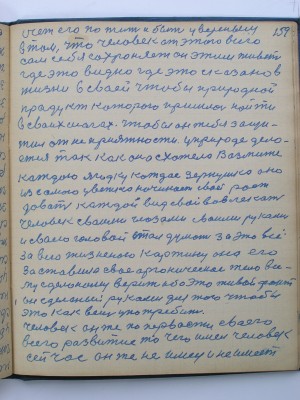 счет его по
в том, что человек от этого всего
сам себя сохраняет он этим живет
где это видно где это сказано в
жизни в своей чтобы природной
продукт которого пришлось найти
в своих шагах. чтобы он тебя защи-
тил от не приятности. у природе дела-
ется так как она схотела Возьмите
каждую ягодку каждое зернушко оно
из самого цветка начинает свой рост
довать каждой вид свой вовлекать
человек своими глазами своими руками
и своею головой стал думать за это всё
за всю жизненую картину она его
заставила свое органическое тело все-
му сделоному верить ибо это живой факт
он сделаний руками для того чтобы
это как вещ употребить.
Человек он же по первости своего
всего развитие то чего имел человек
сей час он же не имеет и не имеет
159